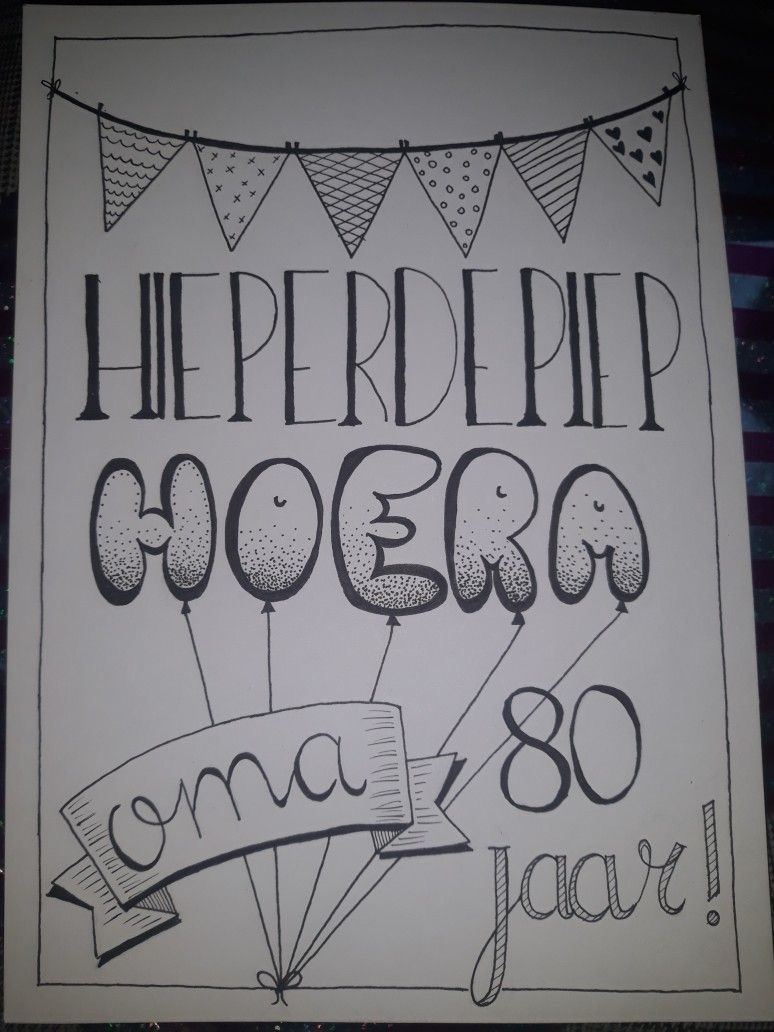 HIEPERDEPIEP
HOERA
oma
80
jaar!